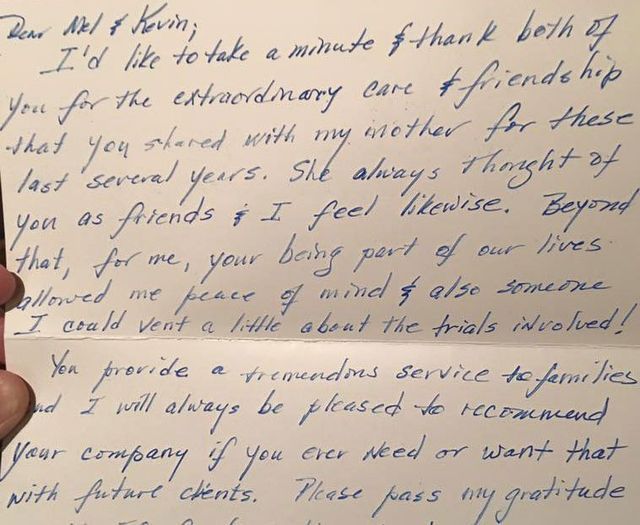 Dear Mel & Kevin;
I'd like to take a minute & thank both of
you for the extraordinary care & friendship
that you shared with my mother for these
last several years. She always thought of
you as friends & I feel likewise. Beyond
that, for me, your being part of our lives
allowed me peace of mind & also someone
I could vent a little about the trials involved!
You provide a tremendous service to families
and I will always be pleased to recommend
your company if you ever need or want that
with future clients. Please pass my gratitude